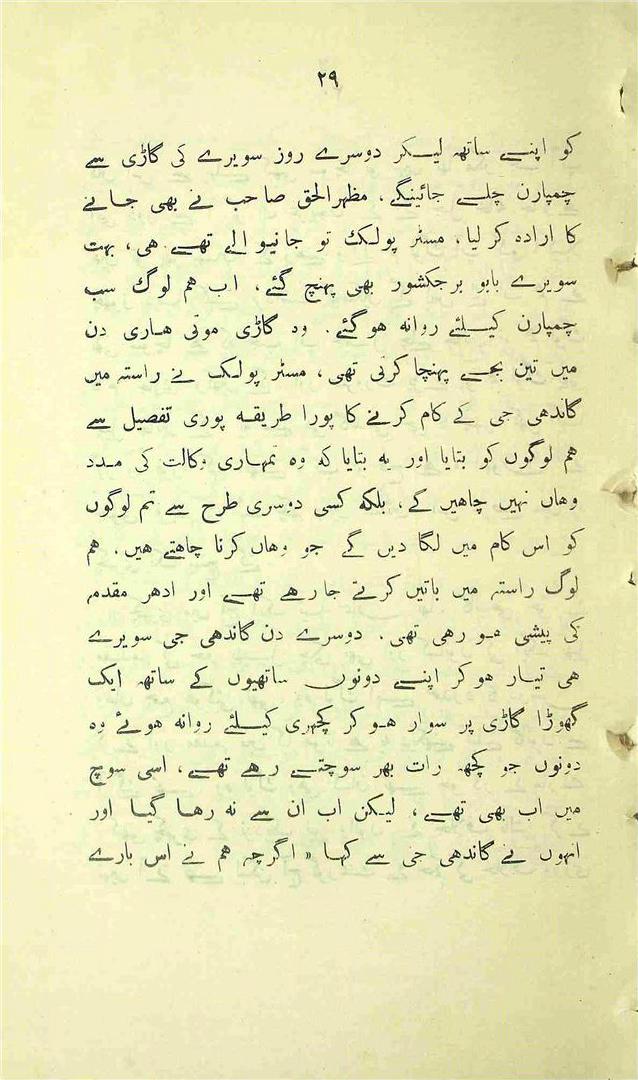 ۲۹
کو اپنے ساتھ لیکر دوسرے روز سویرے کی گاڑی سے
چمپارن چلے جائینگے، مظہرالحق صاحب نے بھی جانے
کا ارادہ کر لیا، مسٹر پولک تو جانیوالے تھے ہی، بہت
سویرے بابو برجکشور بھی پہنچ گئے، اب ہم لوگ سب
چمپارن کیلئے روانہ ہوگئے. وہ گاڑی موتی ہاری دن
میں تین بجے پہنچا کرتی تھی، مسٹر پولک نے راستہ میں
گاندھی جی کے کام کرنے کا پورا طریقہ پوری تفصیل سے
ہم لوگوں کو بتایا اور یہ بتایا کہ وہ تمہاری وکالت کی مدد
وہاں نہیں چاہیں گے، بلکہ کسی دوسری طرح سے تم لوگوں
کو اس کام میں لگا دیں گے جو وہاں کرنا چاہتے ہیں. ہم
لوگ راستہ میں باتیں کرتے جارہے تھے اور ادھر مقدمہ
کی پیشی ہو رہی تھی. دوسرے دن گاندھی جی سویرے
ہی تیار ہوکر اپنے دونوں ساتھیوں کے ساتھ ایک
گھوڑا گاڑی پر سوار ہو کر کچہری کیلئے روانہ ہوئے وہ
دونوں جو کچھ رات بھر سوچتے رہے تھے، اسی سوچ
میں اب بھی تھے، لیکن اب ان سے نہ رہا گیا اور
انہوں نے گاندھی جی سے کہا «اگرچہ ہم نے اس بارے